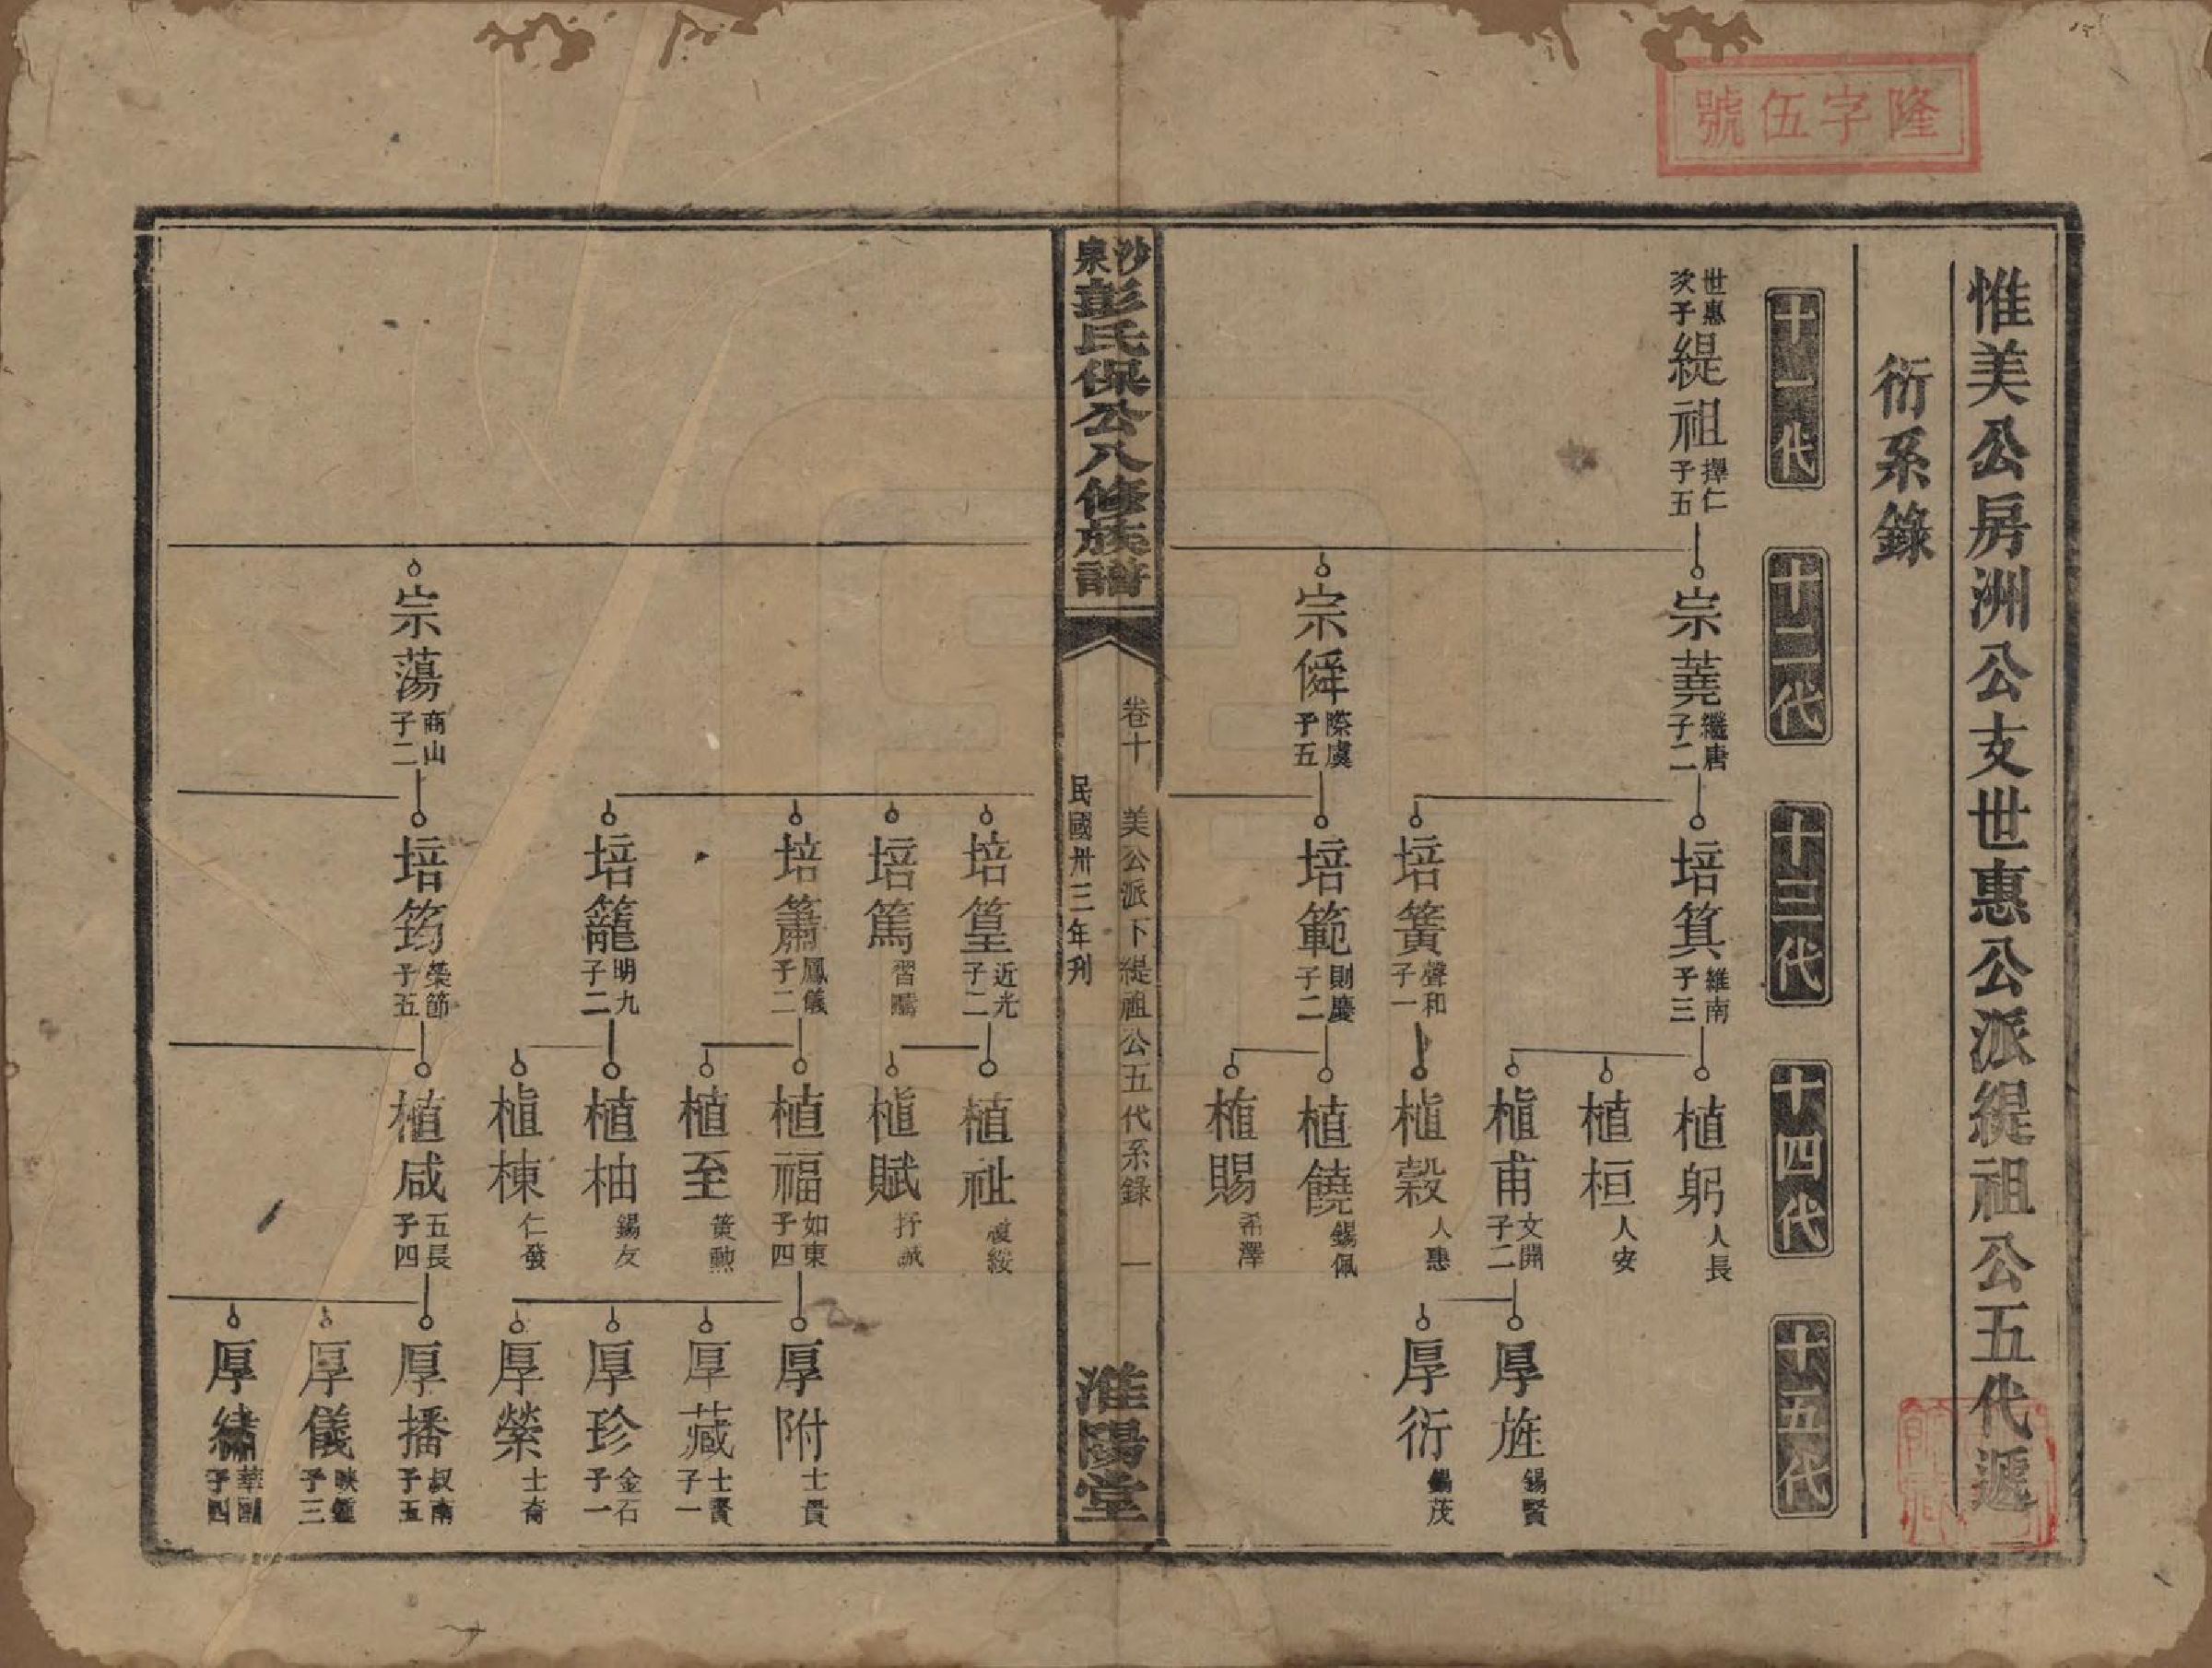 隆字伍號
惟美公房洲公支世惠公派緹祖公五代遞
衍系錄
十一代
十二代
十三代
十四代
十五代
世惠次子緹祖擇仁子五
宗蕘繼唐子二
培箕維南子三
植躬人長
植桓人安
植甫文開子二
厚旌錫賢
厚衍錫茂
培簧聲和子一
植穀人惠
宗僢際虞子五
培範則慶子二
植饒錫佩
植賜希澤
沙泉彭氏保公八修族譜
卷十 美公派下緹祖公五代系錄 一
民國卅三年刊
淮陽堂
培篁近光子二
植祉履綏
植賦抒誠
培篤習
培簫鳳儀子二
植福如東子四
厚附士貴
厚藏士賢子一
厚珍金石子一
厚榮士奇
植至黃勲
培籠明九子二
植柚錫友
植棟仁發
宗蕩商山子二
培筠榮節子五
植咸五長子四
厚播叔南子五
厚儀映鍾子三
厚繡華國子四